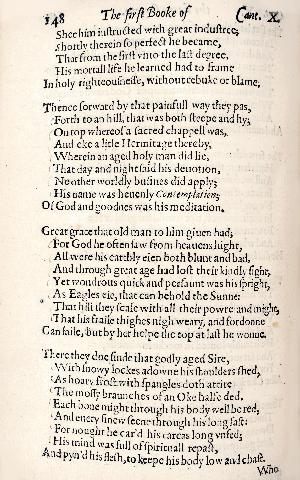 148 The first Booke of Cant. X.
Shee him instructed with great industree,
Shortly therein so perfect he became,
That from the first vnto the last degree,
His mortall life he learned had to frame
In holy righteousnesse, without rebuke or blame.
Thence forward by that painfull way they pas,
Forth to an hill, that was both steepe and hy;
On top whereof a sacred chappell was,
And eke a litle Hermitage thereby,
Wherein an aged holy man did lie,
That day and night said his deuotion,
Ne other worldly busines did apply;
His name was heuenly Contemplation;
Of God and goodnes was his meditation.
Great grace that old man to him giuen had;
For God he often saw from heauens hight,
All were his earthly eien both blunt and bad,
And through great age had lost their kindly sight,
Yet wondrous quick and persaunt was his spright,
As Eagles eie, that can behold the Sunne:
That hill they scale with all their powre and might,
That his fraile thighes nigh weary and fordonne
Gan faile, but by her helpe the top at last he wonne.
There they doe finde that godly aged Sire,
With snowy lockes adowne his shoulders shed,
As hoary frost with spangles doth attire
The mossy braunches of an Oke halfe ded.
Each bone might through his body well be red,
And euery sinew seene through his long fast:
For nought he car'd his carcas long vnfed;
His mind was full of spirituall repast,
And pyn'd his flesh, to keepe his body low and chast.
Who